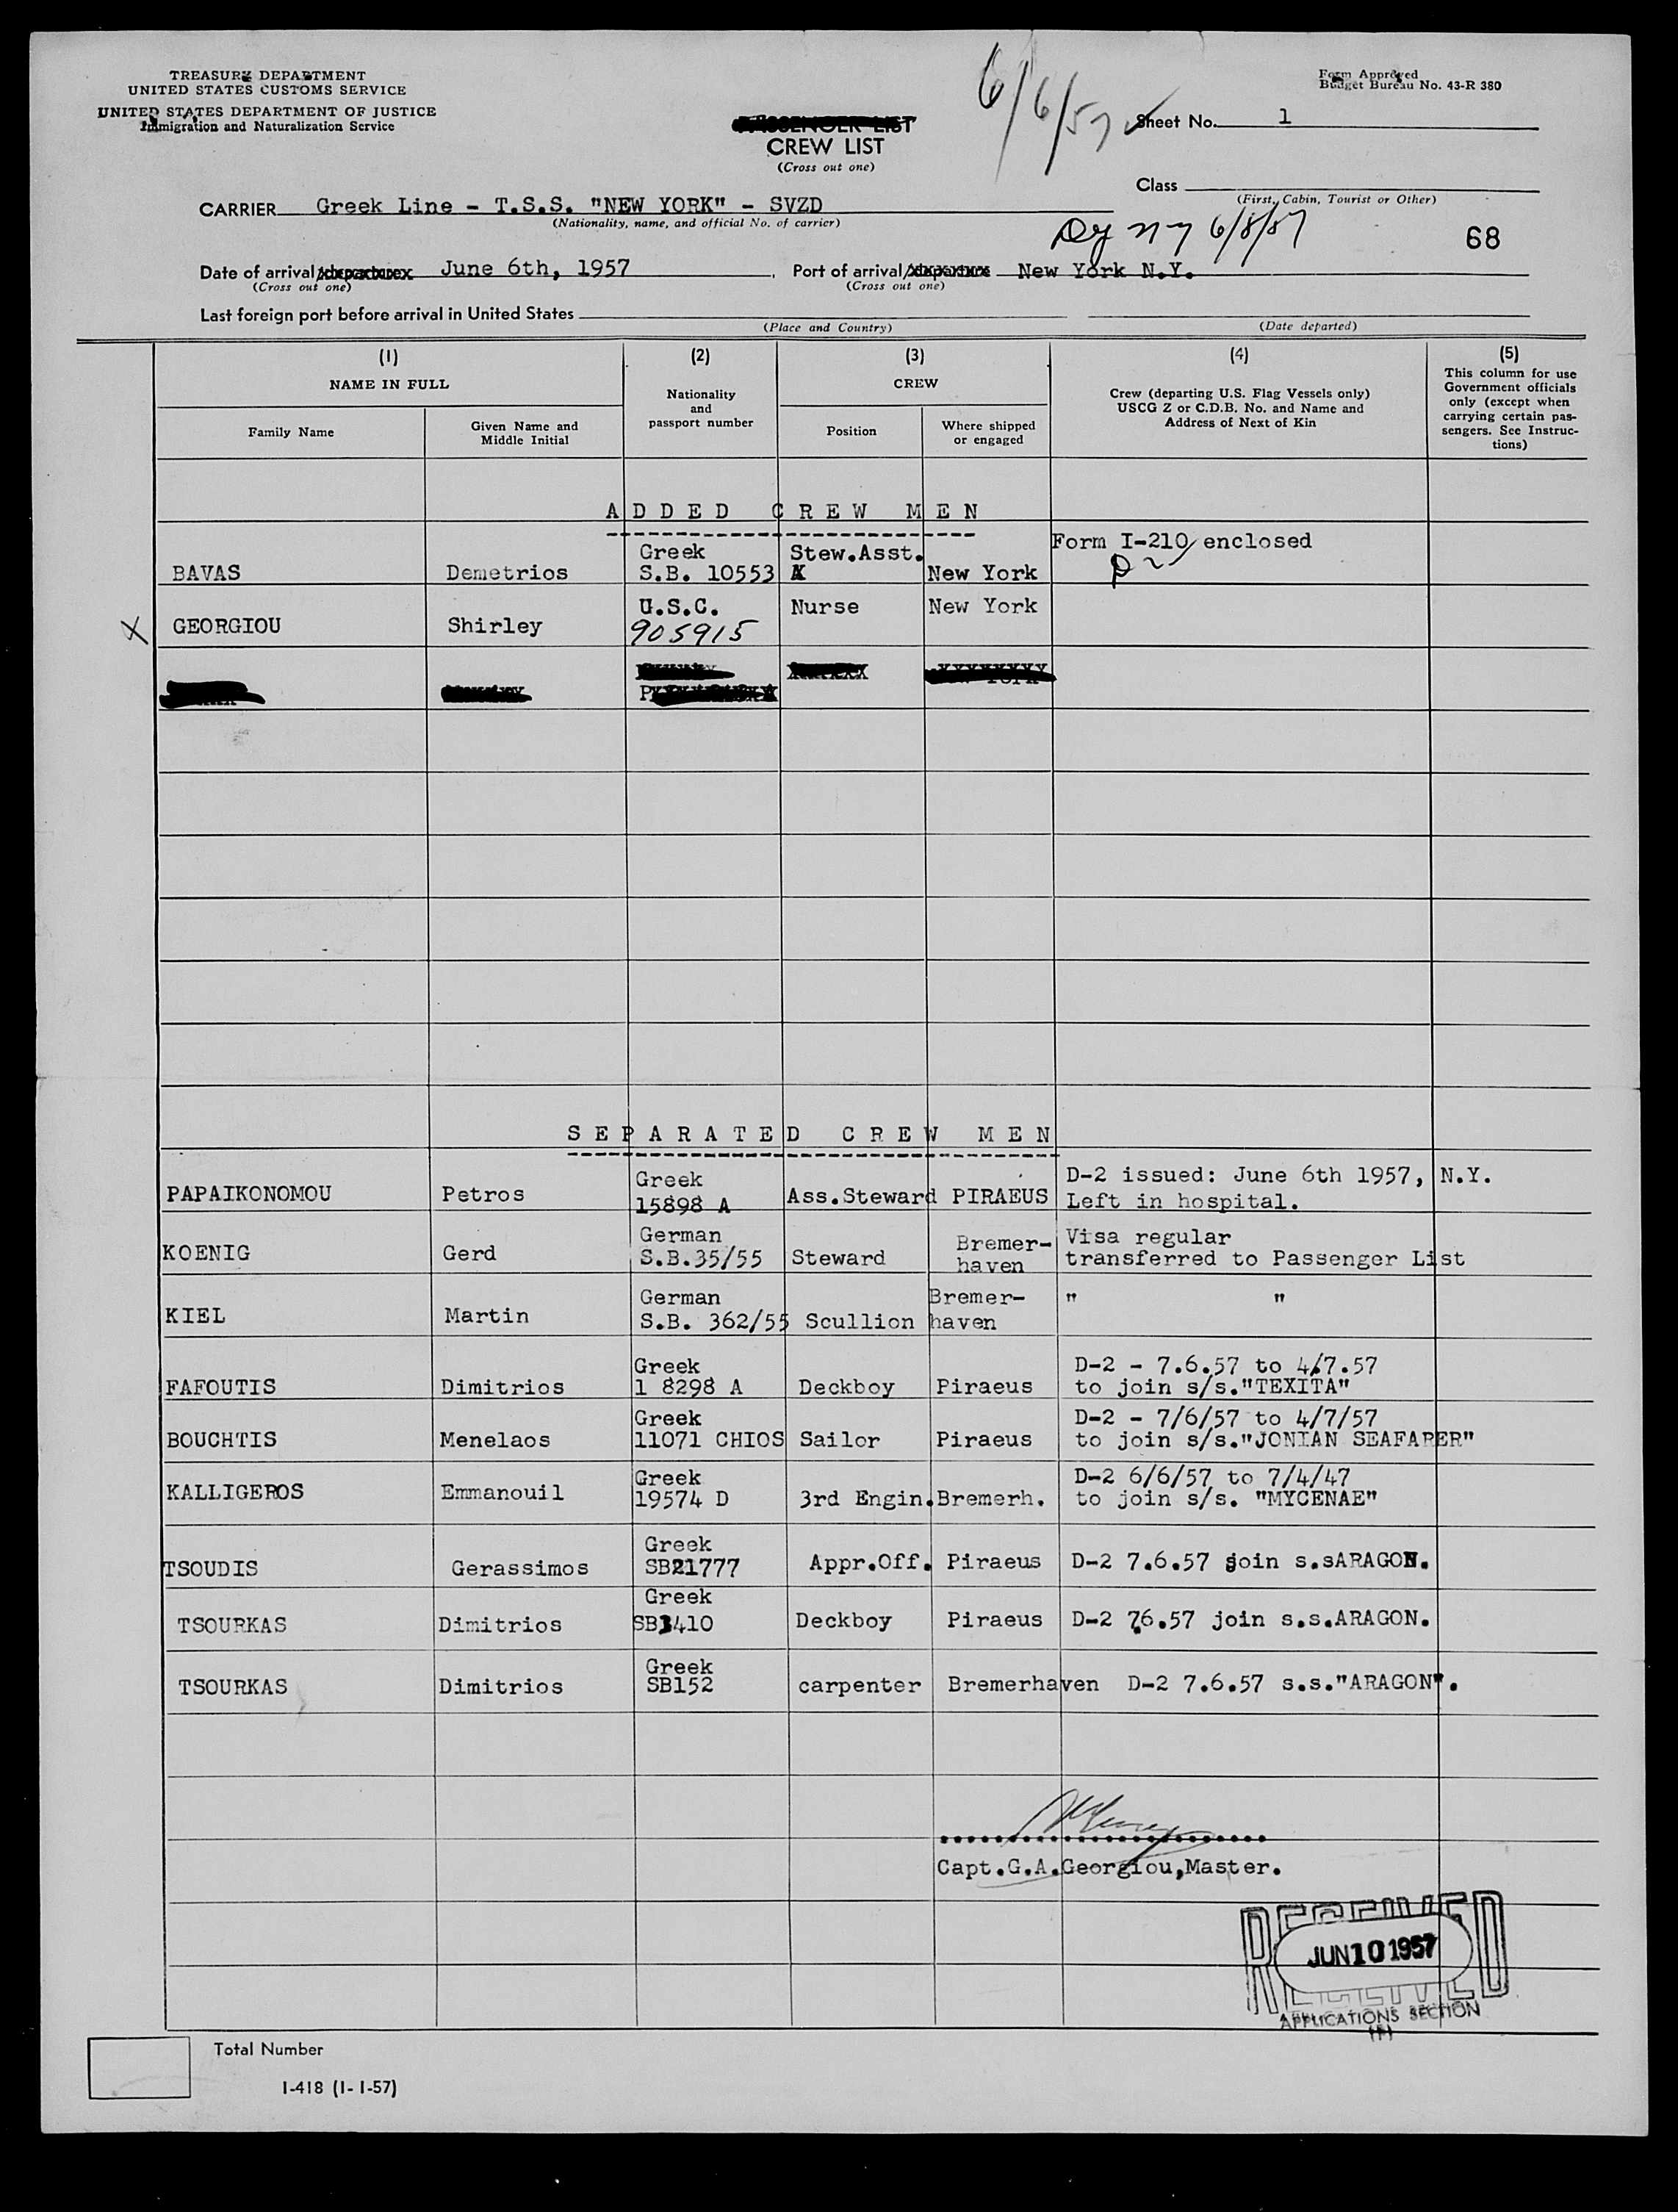 TREASURY DEPARTMENT
UNITED STATES CUSTOMS SERVICE
UNITED STATES DEPARTMENT OF JUSTICE
Immigration and Naturalization Service
Form Approved
Budget Bureau No. 43-R 380
6/6/57
Sheet No. 1
PASSENGER LIST
CREW LIST
(Cross out one)
Class
(First, Cabin, Tourist or Other)
CARRIER Greek Line - T.S.S. "NEW YORK" - SVZD
(Nationality, name, and official No. of carrier)
ny 6/8/57
68
Date of arrival/departure June 6th, 1957
(Cross out one)
Port of arrival/departure New York N.Y.
(Cross out one)
Last foreign port before arrival in United States
(Place and Country)
(Date departed)
(1) (2) (3) (4) (5)
NAME IN FULL
Family Name
Given Name and Middle Initial
Nationality and passport number
CREW
Position
Where shipped or engaged
Crew (departing U.S. Flag Vessels only)
USCG Z or C.D.B. No. and Name and
Address of Next of Kin
This column for use
Government officials
only (except when
carrying certain pas-
sengers. See Instruc-
tions)
ADDED CREW MEN
Greek Stew.Asst. Form I-210 enclosed
BAVAS Demetrios S.B. 10553 New York
U.S.C. Nurse New York
X GEORGIOU Shirley 905915
SEPARATED CREW MEN
Greek D-2 issued: June 6th 1957, N.Y.
PAPAIKONOMOU Petros 15898 A Ass.Steward PIRAEUS Left in hospital.
German Bremer- Visa regular
KOENIG Gerd S.B.35/55 Steward haven transferred to Passenger List
German Bremer- " "
KIEL Martin S.B. 362/55 Scullion haven
Greek D-2 - 7.6.57 to 4/7.57
FAFOUTIS Dimitrios 1 8298 A Deckboy Piraeus to join s/s."TEXITA"
Greek D-2 - 7/6/57 to 4/7/57
BOUCHTIS Menelaos 11071 CHIOS Sailor Piraeus to join s/s."JONIAN SEAFARER"
Greek D-2 6/6/57 to 7/4/47
KALLIGEROS Emmanouil 19574 D 3rd Engin. Bremerh. to join s/s. "MYCENAE"
Greek
TSOUDIS Gerassimos SB21777 Appr.Off. Piraeus D-2 7.6.57 join s.sARAGON.
Greek
TSOURKAS Dimitrios SB3410 Deckboy Piraeus D-2 7.6.57 join s.s.ARAGON.
Greek
TSOURKAS Dimitrios SB152 carpenter Bremerhaven D-2 7.6.57 s.s."ARAGON".
Capt.G.A.Georgiou,Master.
RECEIVED
JUN 10 1957
RECEIVED
APPLICATIONS SECTION
Total Number
I-418 (1-1-57)